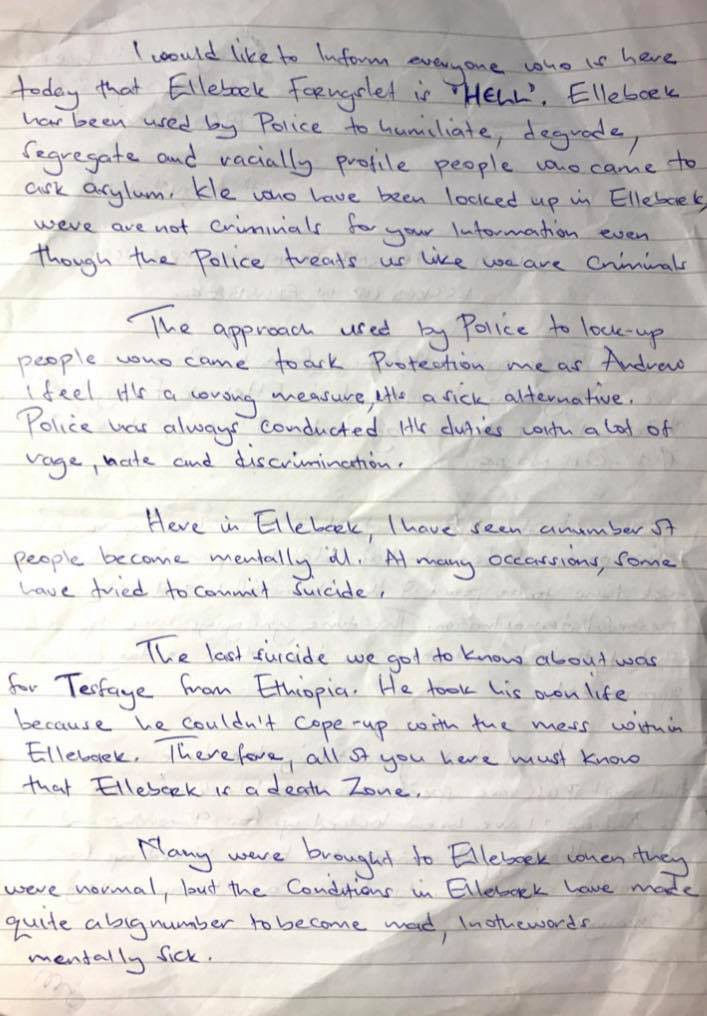 I would like to Inform everyone who is here
today that Ellebæk Fængslet is "HELL". Ellebæk
has been used by Police to humiliate, degrade,
segregate and racially profile people who came to
ask asylum. We who have been locked up in Ellebæk,
weve are not criminials for your Information even
though the Police treats us like we are criminals
The approach used by Police to lock-up
people who came to ask Protection me as Andrew
I feel it's a wrong measure, it's a sick alternative.
Police has always conducted it's duties with a lot of
rage, hate and discrimination.
Here in Ellebæk, I have seen a number of
people become mentally ill. At many occassions, some
have tried to commit suicide.
The last suicide we got to know about was
for Tesfaye from Ethiopia. He took his own life
because he couldn't cope-up with the mess within
Ellebæk. Therefore, all of you here must know
that Ellebæk is a death Zone.
Many were brought to Ellebæk when they
were normal, but the conditions in Ellebæk have made
quite a big number to become mad, In othewords
mentally sick.